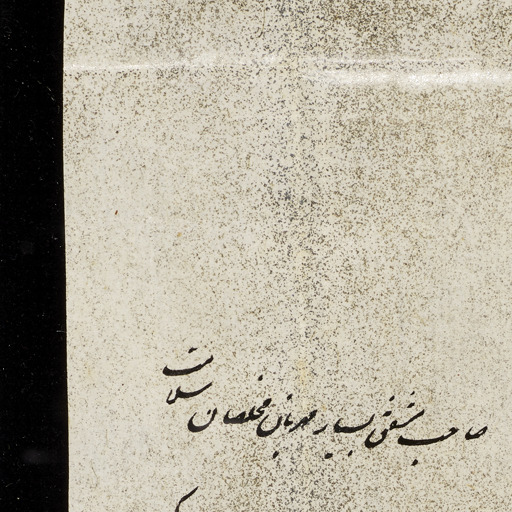 صاحب مشفق بسیار مهربان مخلصان سلامت